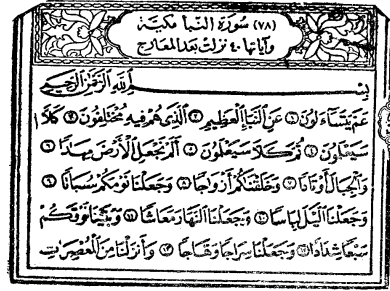 (٧٨) سورة النبأ مكية
وآياتها ٤٠ نزلت بعد المعارج
بسم الله الرحمن الرحيم
عَمَّ يَتَسَاءَلُونَ ١ عَنِ النَّبَإِ الْعَظِيمِ ٢ الَّذِي هُمْ فِيهِ مُخْتَلِفُونَ ٣ كَلَّا
سَيَعْلَمُونَ ٤ ثُمَّ كَلَّا سَيَعْلَمُونَ ٥ أَلَمْ نَجْعَلِ الْأَرْضَ مِهَٰدًا ٦
وَالْجِبَالَ أَوْتَادًا ٧ وَخَلَقْنَٰكُمْ أَزْوَٰجًا ٨ وَجَعَلْنَا نَوْمَكُمْ سُبَاتًا ٩
وَجَعَلْنَا الَّيْلَ لِبَاسًا ١٠ وَجَعَلْنَا النَّهَارَ مَعَاشًا ١١ وَبَنَيْنَا فَوْقَكُمْ
سَبْعًا شِدَادًا ١٢ وَجَعَلْنَا سِرَاجًا وَهَّاجًا ١٣ وَأَنزَلْنَا مِنَ الْمُعْصِرَٰتِ